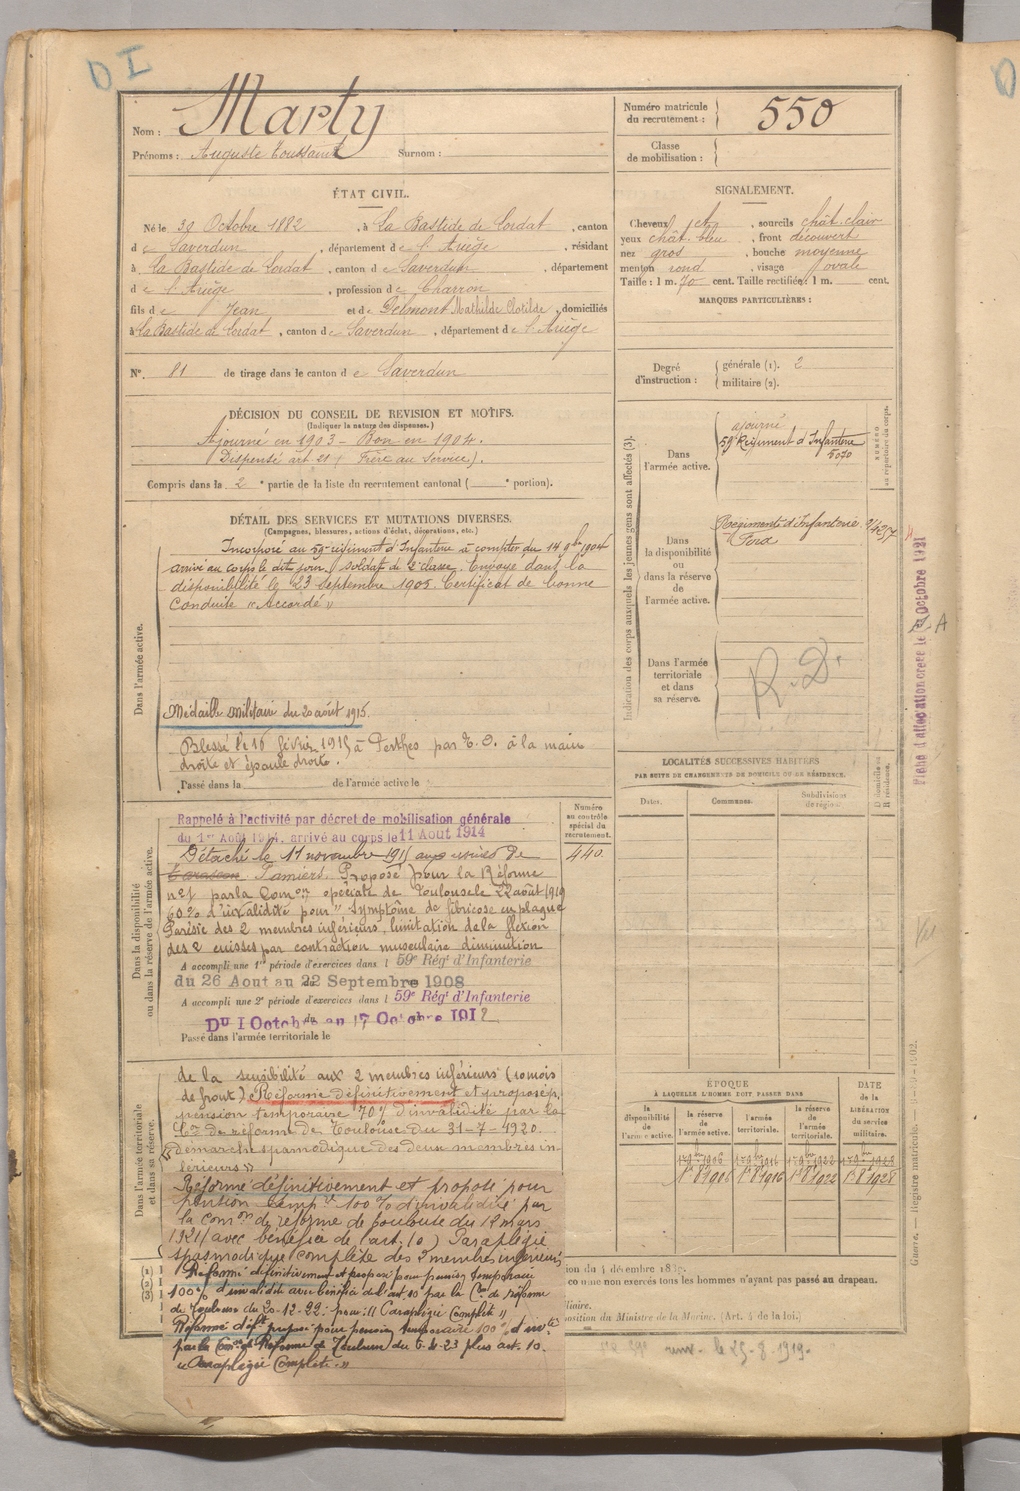 D I
Nom : Marty
Prénoms : Auguste Toussaint Surnom :
Numéro matricule du recrutement : 550
Classe de mobilisation :
ÉTAT CIVIL.
Né le 30 Octobre 1882, à La Bastide de Lordat, canton
de Saverdun, département de l'Ariège, résidant
à La Bastide de Lordat, canton de Saverdun, département
de l'Ariège, profession de Charron
fils de Jean et de Delmont Mathilde Clotilde, domiciliés
à La Bastide de Lordat, canton de Saverdun, département de l'Ariège
N°. 81 de tirage dans le canton de Saverdun
SIGNALEMENT.
Cheveux chât, sourcils chât. clair
yeux chât. bleu, front découvert
nez gros, bouche moyenne
menton rond, visage ovale
Taille : 1 m. 70 cent. Taille rectifiée : 1 m. cent.
MARQUES PARTICULIÈRES :
Degré d'instruction : générale (1). 2
militaire (2).
DÉCISION DU CONSEIL DE REVISION ET MOTIFS.
(Indiquer la nature des dispenses.)
Ajourné en 1903 – Bon en 1904.
Dispensé art 21 (Frère au Service).
Compris dans la 2e partie de la liste du recrutement cantonal ( e portion).
DÉTAIL DES SERVICES ET MUTATIONS DIVERSES.
(Campagnes, blessures, actions d'éclat, décorations, etc.)
Dans l'armée active.
Incorporé au 59e régiment d'Infanterie à compter du 14 9bre 1904
arrivé au corps le dit jour, soldat de 2e classe. Envoyé dans la
disponibilité le 23 septembre 1905. Certificat de bonne
conduite "Accordé"
Médaille Militaire du 20 août 1915.
Blessé le 16 février 1915 à Perthes par E. O. à la main
droite et épaule droite.
Passé dans la de l'armée active le
Indication des corps auxquels les jeunes gens sont affectés (3).
NUMÉRO au répertoire du corps.
Dans l'armée active.
ajourné
59e Régiment d'Infanterie
5070
Dans la disponibilité ou dans la réserve de l'armée active.
Régiment d'Infanterie
Foix
Dans l'armée territoriale et dans sa réserve.
R. D.
Fiche d'affectation créée le Octobre 1921
LOCALITÉS SUCCESSIVES HABITÉES
PAR SUITE DE CHANGEMENTS DE DOMICILE OU DE RÉSIDENCE.
Dates. Communes. Subdivisions de région. D domicile ou R résidence.
Dans la disponibilité ou dans la réserve de l'armée active.
Numéro au contrôle spécial du recrutement.
440
Rappelé à l'activité par décret de mobilisation générale
du 1er Août 1914, arrivé au corps le 11 Août 1914
Détaché le 11 novembre 1915 aux usines de
Tarascon Pamiers. Proposé pour la Réforme
n° 1 par la Comon spéciale de Toulouse le 22 août 1919
60% d'invalidité pour "symptôme de sclérose en plaque
Parésie des 2 membres inférieurs, limitation de la flexion
des 2 cuisses par contraction musculaire diminution
A accompli une 1re période d'exercices dans l 59e Régt d'Infanterie
du 26 Aout au 22 Septembre 1908
A accompli une 2e période d'exercices dans l 59e Régt d'Infanterie
Du 1 Octobre au 17 Octobre 191
Passé dans l'armée territoriale le
Dans l'armée territoriale et dans sa réserve.
de la sensibilité aux 2 membres inférieurs (10 mois
de front). Réformé définitivement et proposé p.
pension temporaire 70% d'invalidité par la
Con de réforme de Toulouse du 31-7-1920.
"démarche spasmodique des deux membres in-
férieurs"
Réformé définitivement et proposé pour
pension tempre 100% d'invalidité par
la comon de réforme de Toulouse du 12 mars
1921 (avec bénéfice de l'art. 10) Paraplégie
spasmodique complète des 2 membres inférieurs
Réformé définitivement et proposé pour pension temporaire
100% d'invalidité avec bénéfice de l'art 10 par la Con de Réforme
de Toulouse du 20-12-22 : pour : "Paraplégie Complète"
Réformé déft proposé pour pension temporaire 100% d'invté
par la Con de Réforme de Toulouse du 6-2-23 plus art. 10.
"Paraplégie Complète."
ÉPOQUE
À LAQUELLE L'HOMME DOIT PASSER DANS
DATE de la LIBÉRATION du service militaire.
la disponibilité de l'armée active. la réserve de l'armée active. l'armée territoriale. la réserve de l'armée territoriale.
1er 8bre 1906 1er 8bre 1916 1er 8bre 1922 1er 8bre 1928
(1)
(2)
(3)
ion du 4 décembre 1889.
comme non exercés tous les hommes n'ayant pas passé au drapeau.
liaire.
position du Ministre de la Marine. (Art. 4 de la loi.)
le 25-8-1919.
Guerre. — Registre matricule.